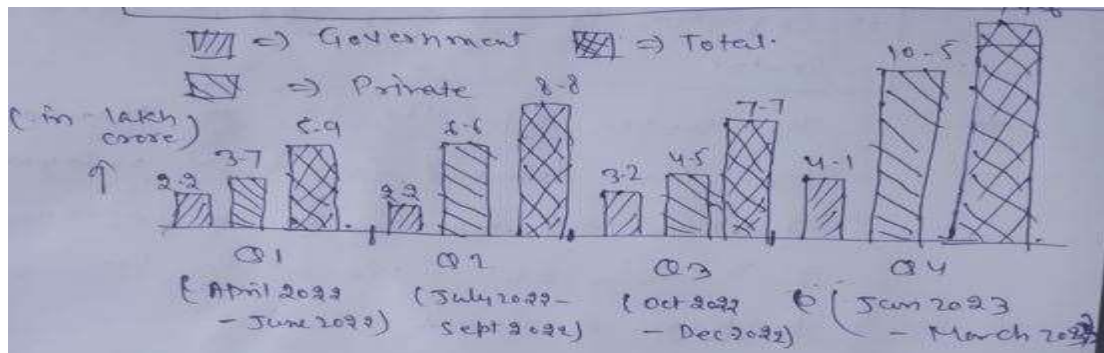 ⇒ Government ⇒ Total.
⇒ Private
(in lakh crore)
↑
2.2 3.7 5.9
2.2 6.6 8.8
3.2 4.5 7.7
4.1 10.5
Q1 Q2 Q3 Q4
(April 2022 - June 2022)
(July 2022 - Sept 2022)
(Oct 2022 - Dec 2022)
(Jan 2023 - March 2023)